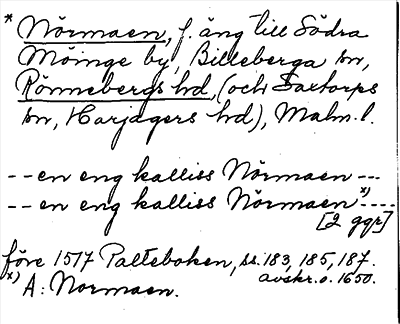 * Nörmaen, f. äng till Södra
Möinge by, Billeberga sn,
Rönnebergs hd, (och Saxtorps
sn, Harjagers hd), Malm. l.
-- en eng kalliss Nörmaen ---
-- en eng kalliss Nörmaen x) ----
[2 ggr]
före 1517 Palteboken, ss. 183, 185, 187.
avskr. o. 1650.
x) A: Normaen.